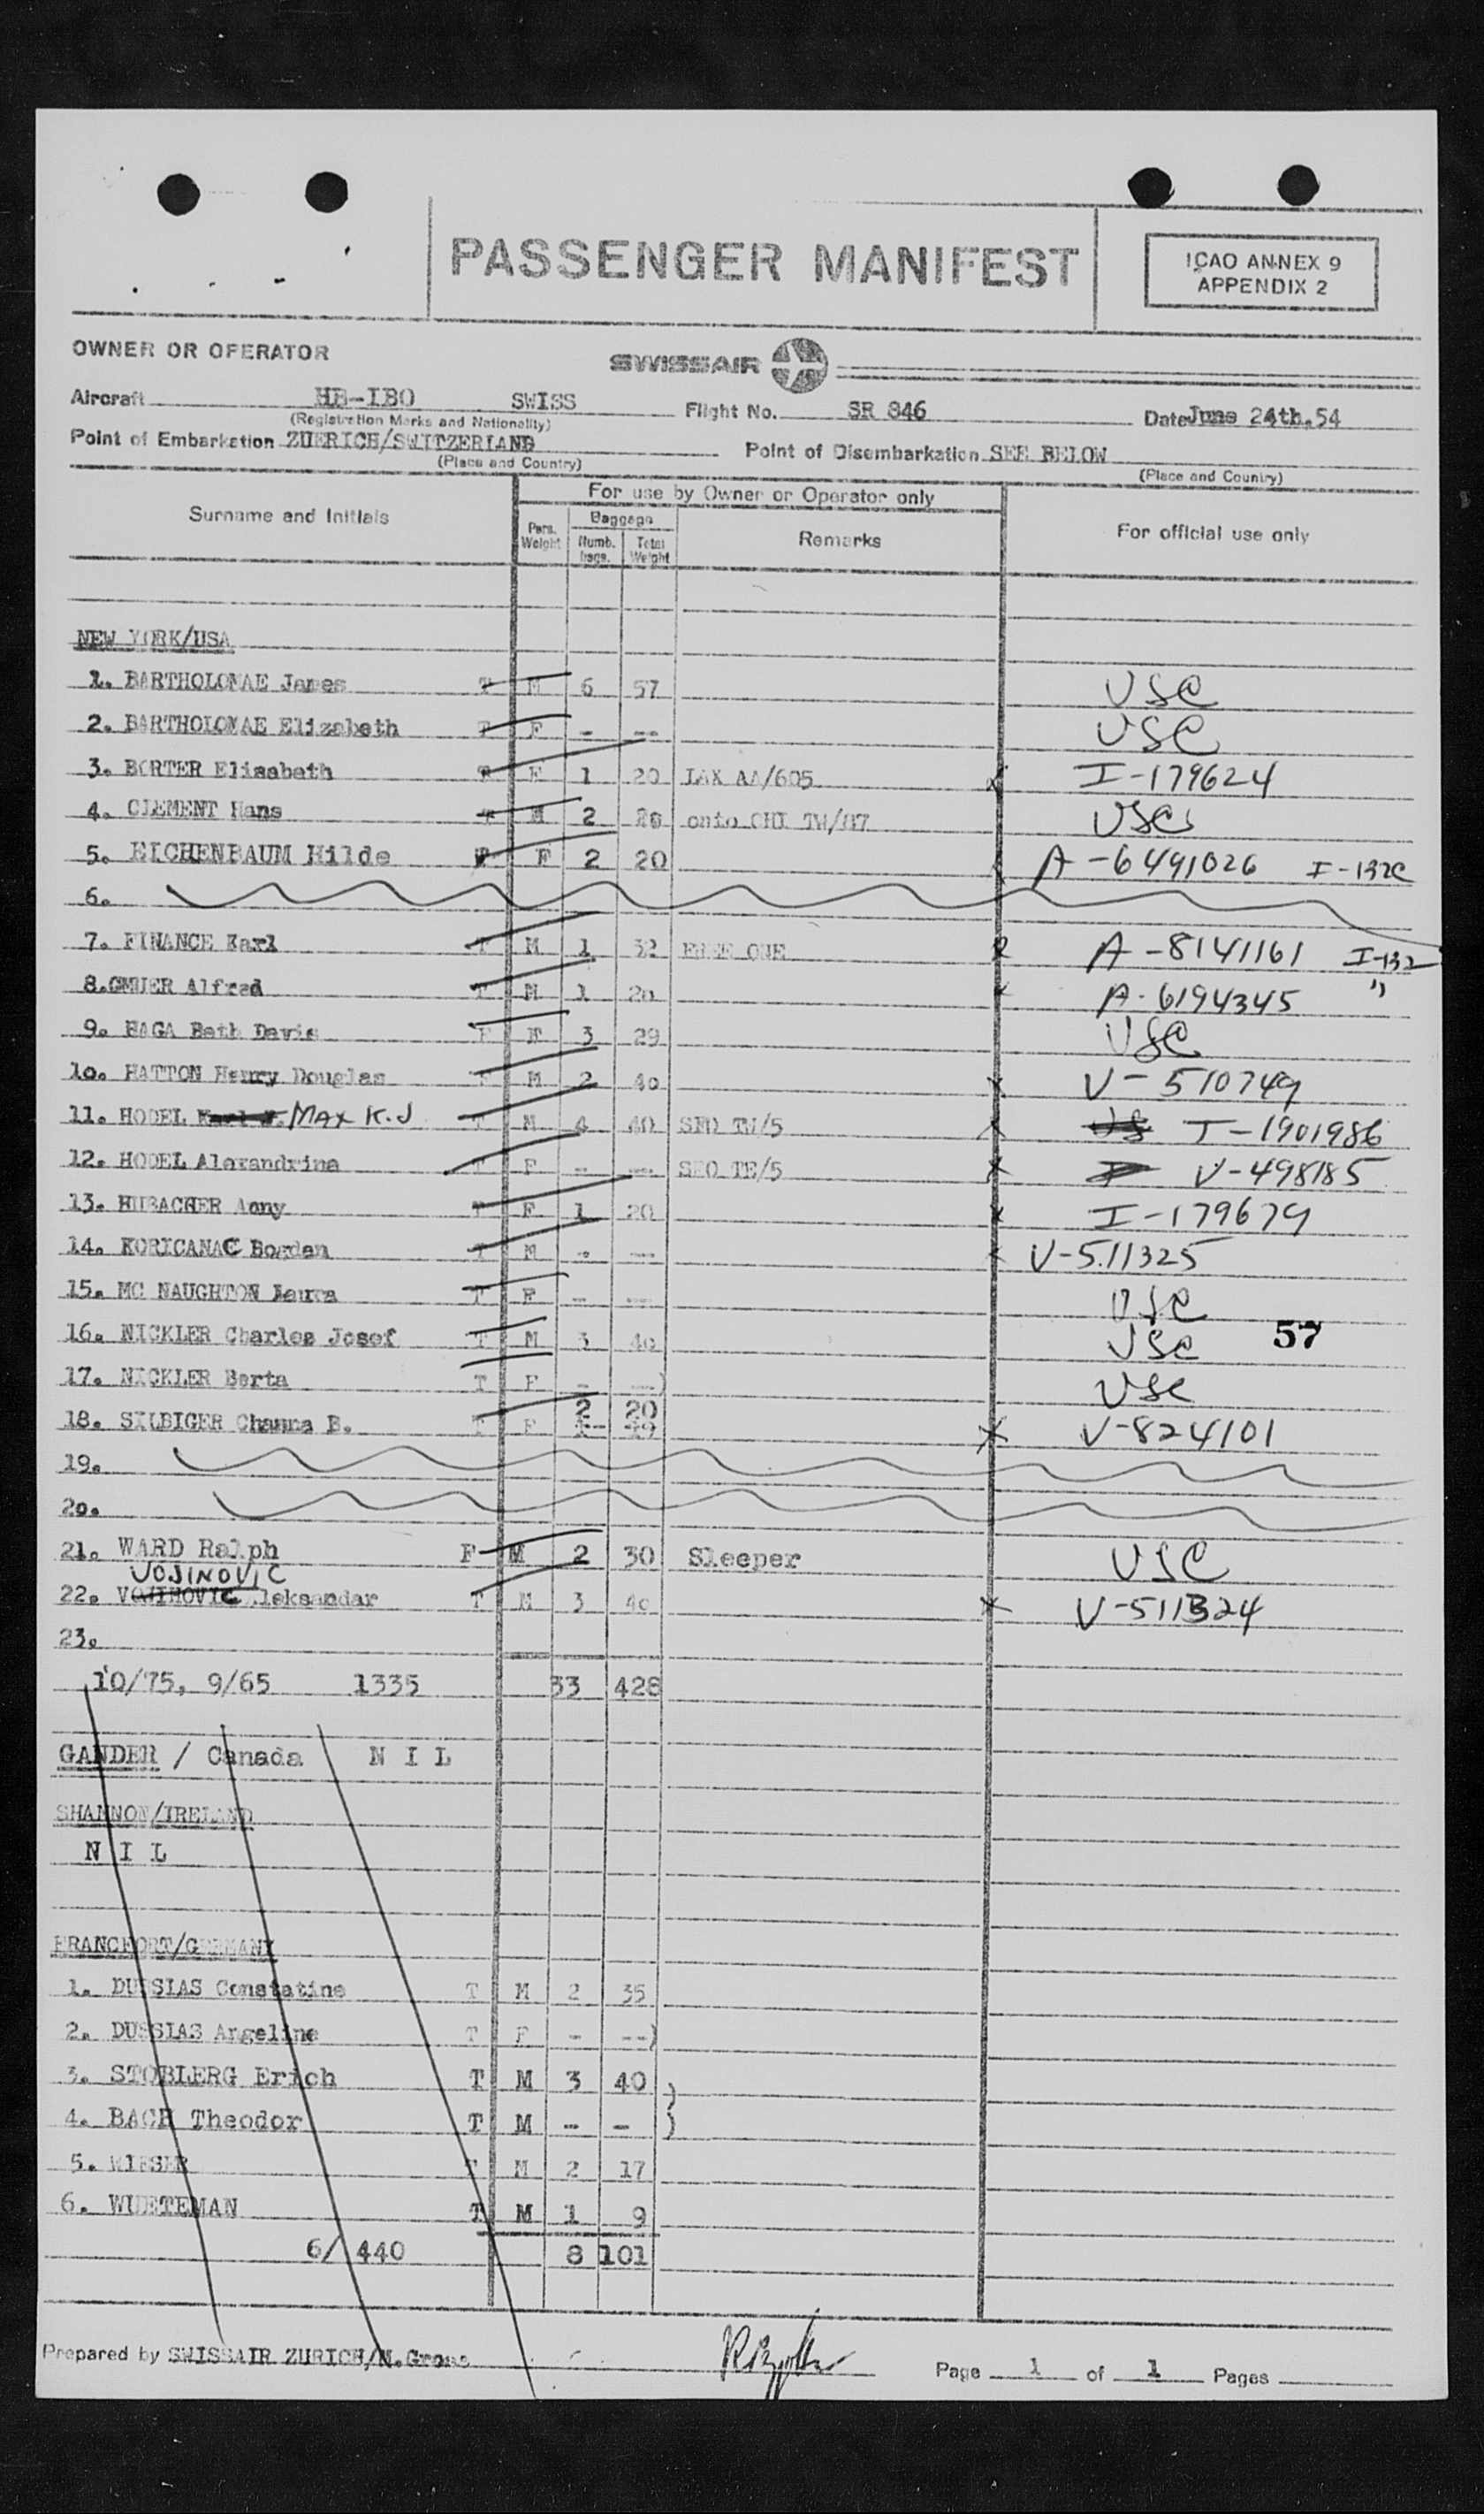 PASSENGER MANIFEST
ICAO ANNEX 9
APPENDIX 2
OWNER OR OPERATOR
SWISSAIR
Aircraft HB-IBO SWISS Flight No. SR 846 Date June 24th.54
(Registration Marks and Nationality)
Point of Embarkation ZUERICH/SWITZERLAND Point of Disembarkation SEE BELOW
(Place and Country) (Place and Country)
For use by Owner or Operator only
Surname and Initials Pers. Weight Baggage Numb. bags. Total Weight Remarks For official use only
NEW YORK/USA
1. BARTHOLOMAE James T M 6 57 USC
2. BARTHOLOMAE Elizabeth T F - -- USC
3. BORTER Elisabeth T F 1 20 LAX AA/605 I-179624
4. CLEMENT Hans T M 2 20 onto CHI TW/87 USC
5. EICHENBAUM Hilde T F 2 20 A-6491026 I-132C
6.
7. FINANCE Karl T M 1 32 FREE ONE A-8141161 I-132
8.GMUER Alfred T M 1 20 A-6194345 "
9. HAGA Beth Davis T F 3 29 USC
10. HATTON Henry Douglas T M 2 40 V-510749
11. HODEL MAX K.J T M 4 40 SFO TW/5 I-1901986
12. HODEL Alexandrina T F -- -- SFO TE/5 V-498185
13. HUBACHER Anny T F 1 20 I-179679
14. KORICANAC Bogdan T M - -- V-511325
15. MC NAUGHTON Laura T F - -- USC
16. NICKLER Charles Josef T M 3 40 USC 57
17. NICKLER Berta T F - --) USC
2 20
18. SILBIGER Channa B. T F V-824101
19.
20.
21. WARD Ralph F M 2 30 Sleeper USC
VOJINOVIC
22. VOJIHOVIC Aleksandar T M 3 40 V-511324
23.
10/75, 9/65 1335 33 428
GANDER / Canada N I L
SHANNON/IRELAND
N I L
FRANCFORT/GERMANY
1. DUSSIAS Constatine T M 2 35
2. DUSSIAS Angeline T F - --)
3. STOBLERG Erich T M 3 40 )
4. BACH Theodor T M - - )
5. T M 2 17
6. WUETEMAN T M 1 9
6/ 440 8 101
Prepared by SWISSAIR ZURICH/N.Gross Page 1 of 1 Pages